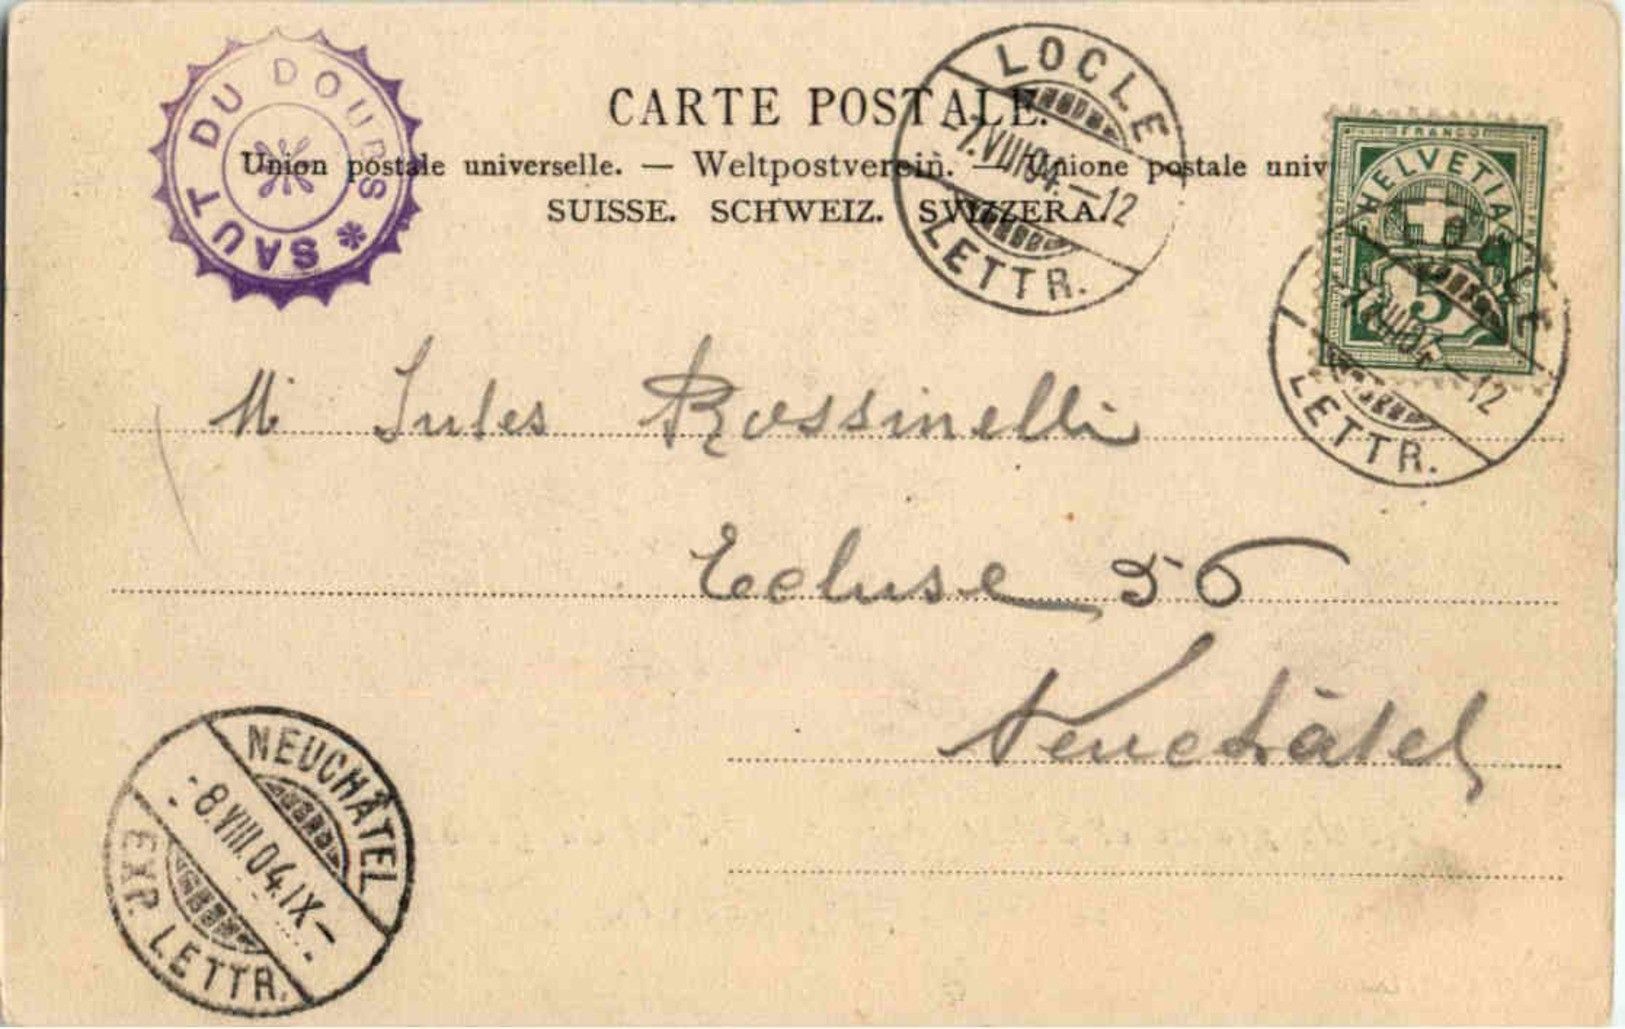 SAUT DU DOUBS *
CARTE POSTALE.
Union postale universelle. — Weltpostverein. — Unione postale univ
SUISSE. SCHWEIZ. SVIZZERA.
LOCLE
-7.VIII04.-12
LETTR.
FRANCO
HELVETIA
5
LOCLE
-7.VIII04.-12
LETTR.
M. Jules Rossinelli
Ecluse 56
Neuchâtel
NEUCHÂTEL
-8.VIII.04.IX-
EXP. LETTR.